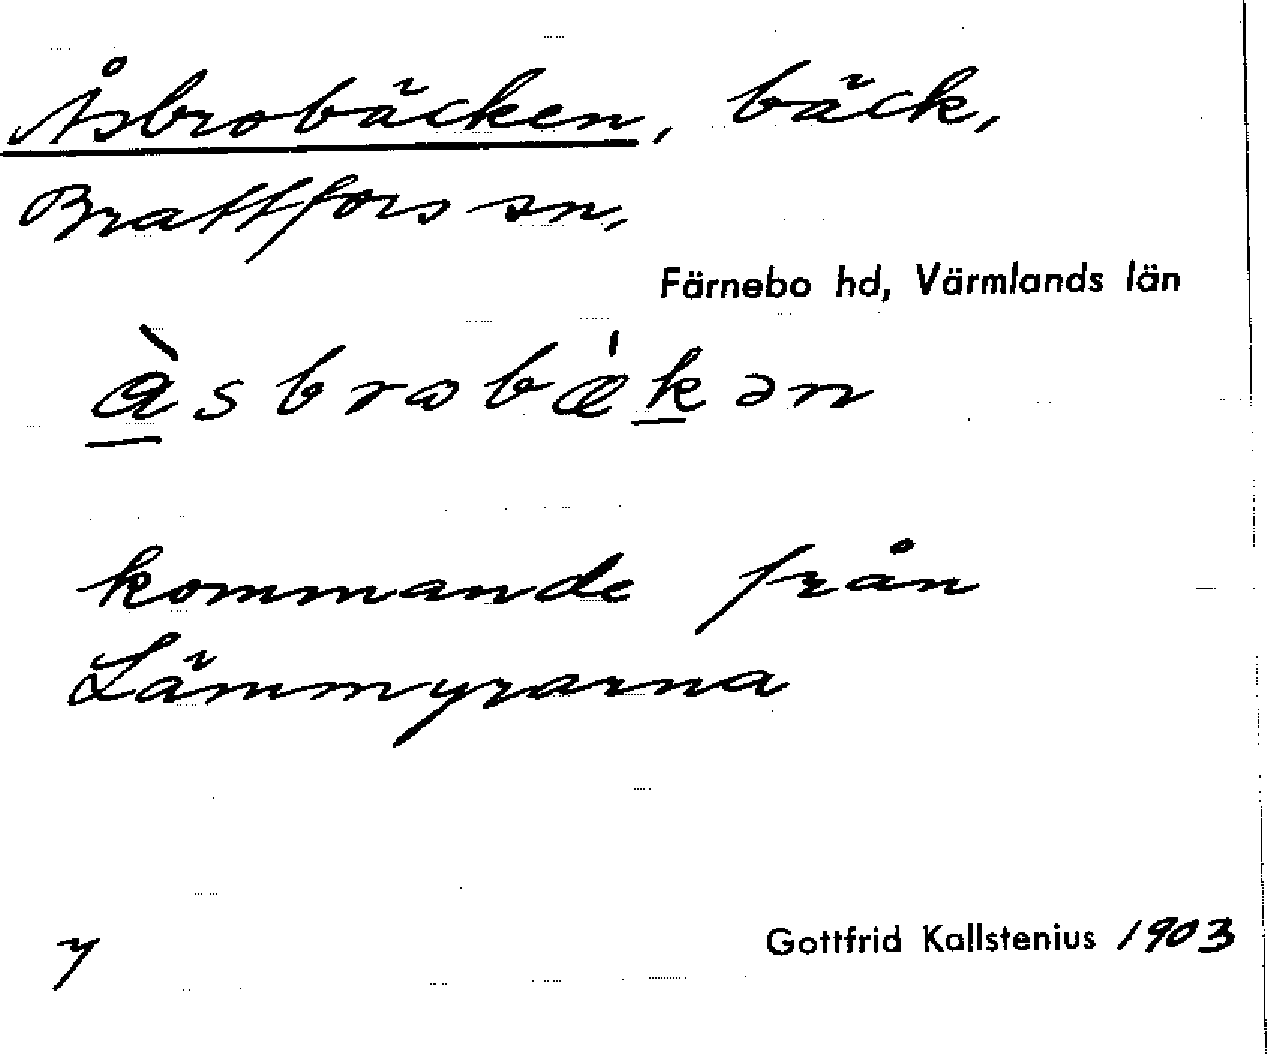 Åsbrobäcken, bäck,
Brattfors sn,
Färnebo hd, Värmlands län
àsbrobǽkən
kommande från
Lämmyrarna
y
Gottfrid Kallstenius 1903